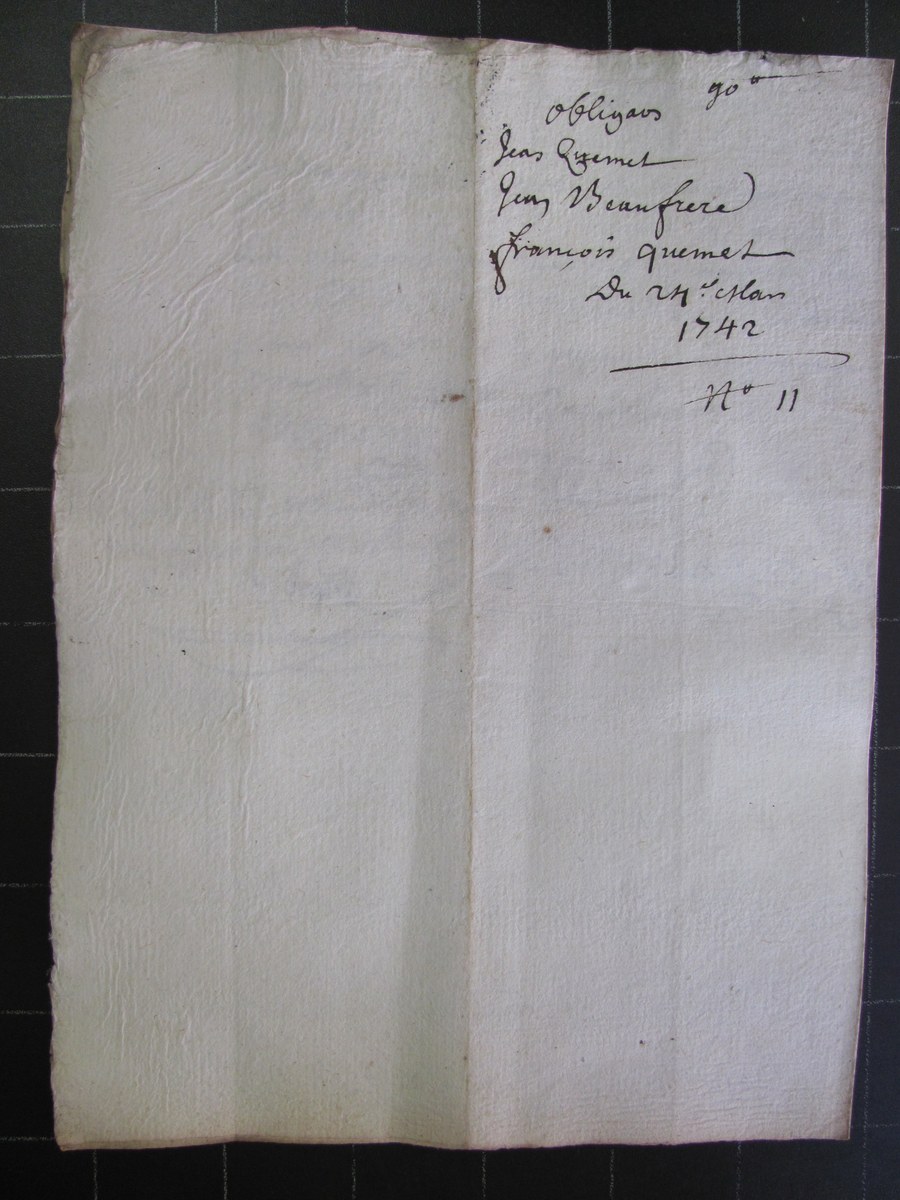 90ᵗᵗ
obligaõs
Jean Quemet
Jean Beaufrere
françois quemet
Du 24ᵉ Mars
1742
Nº 11